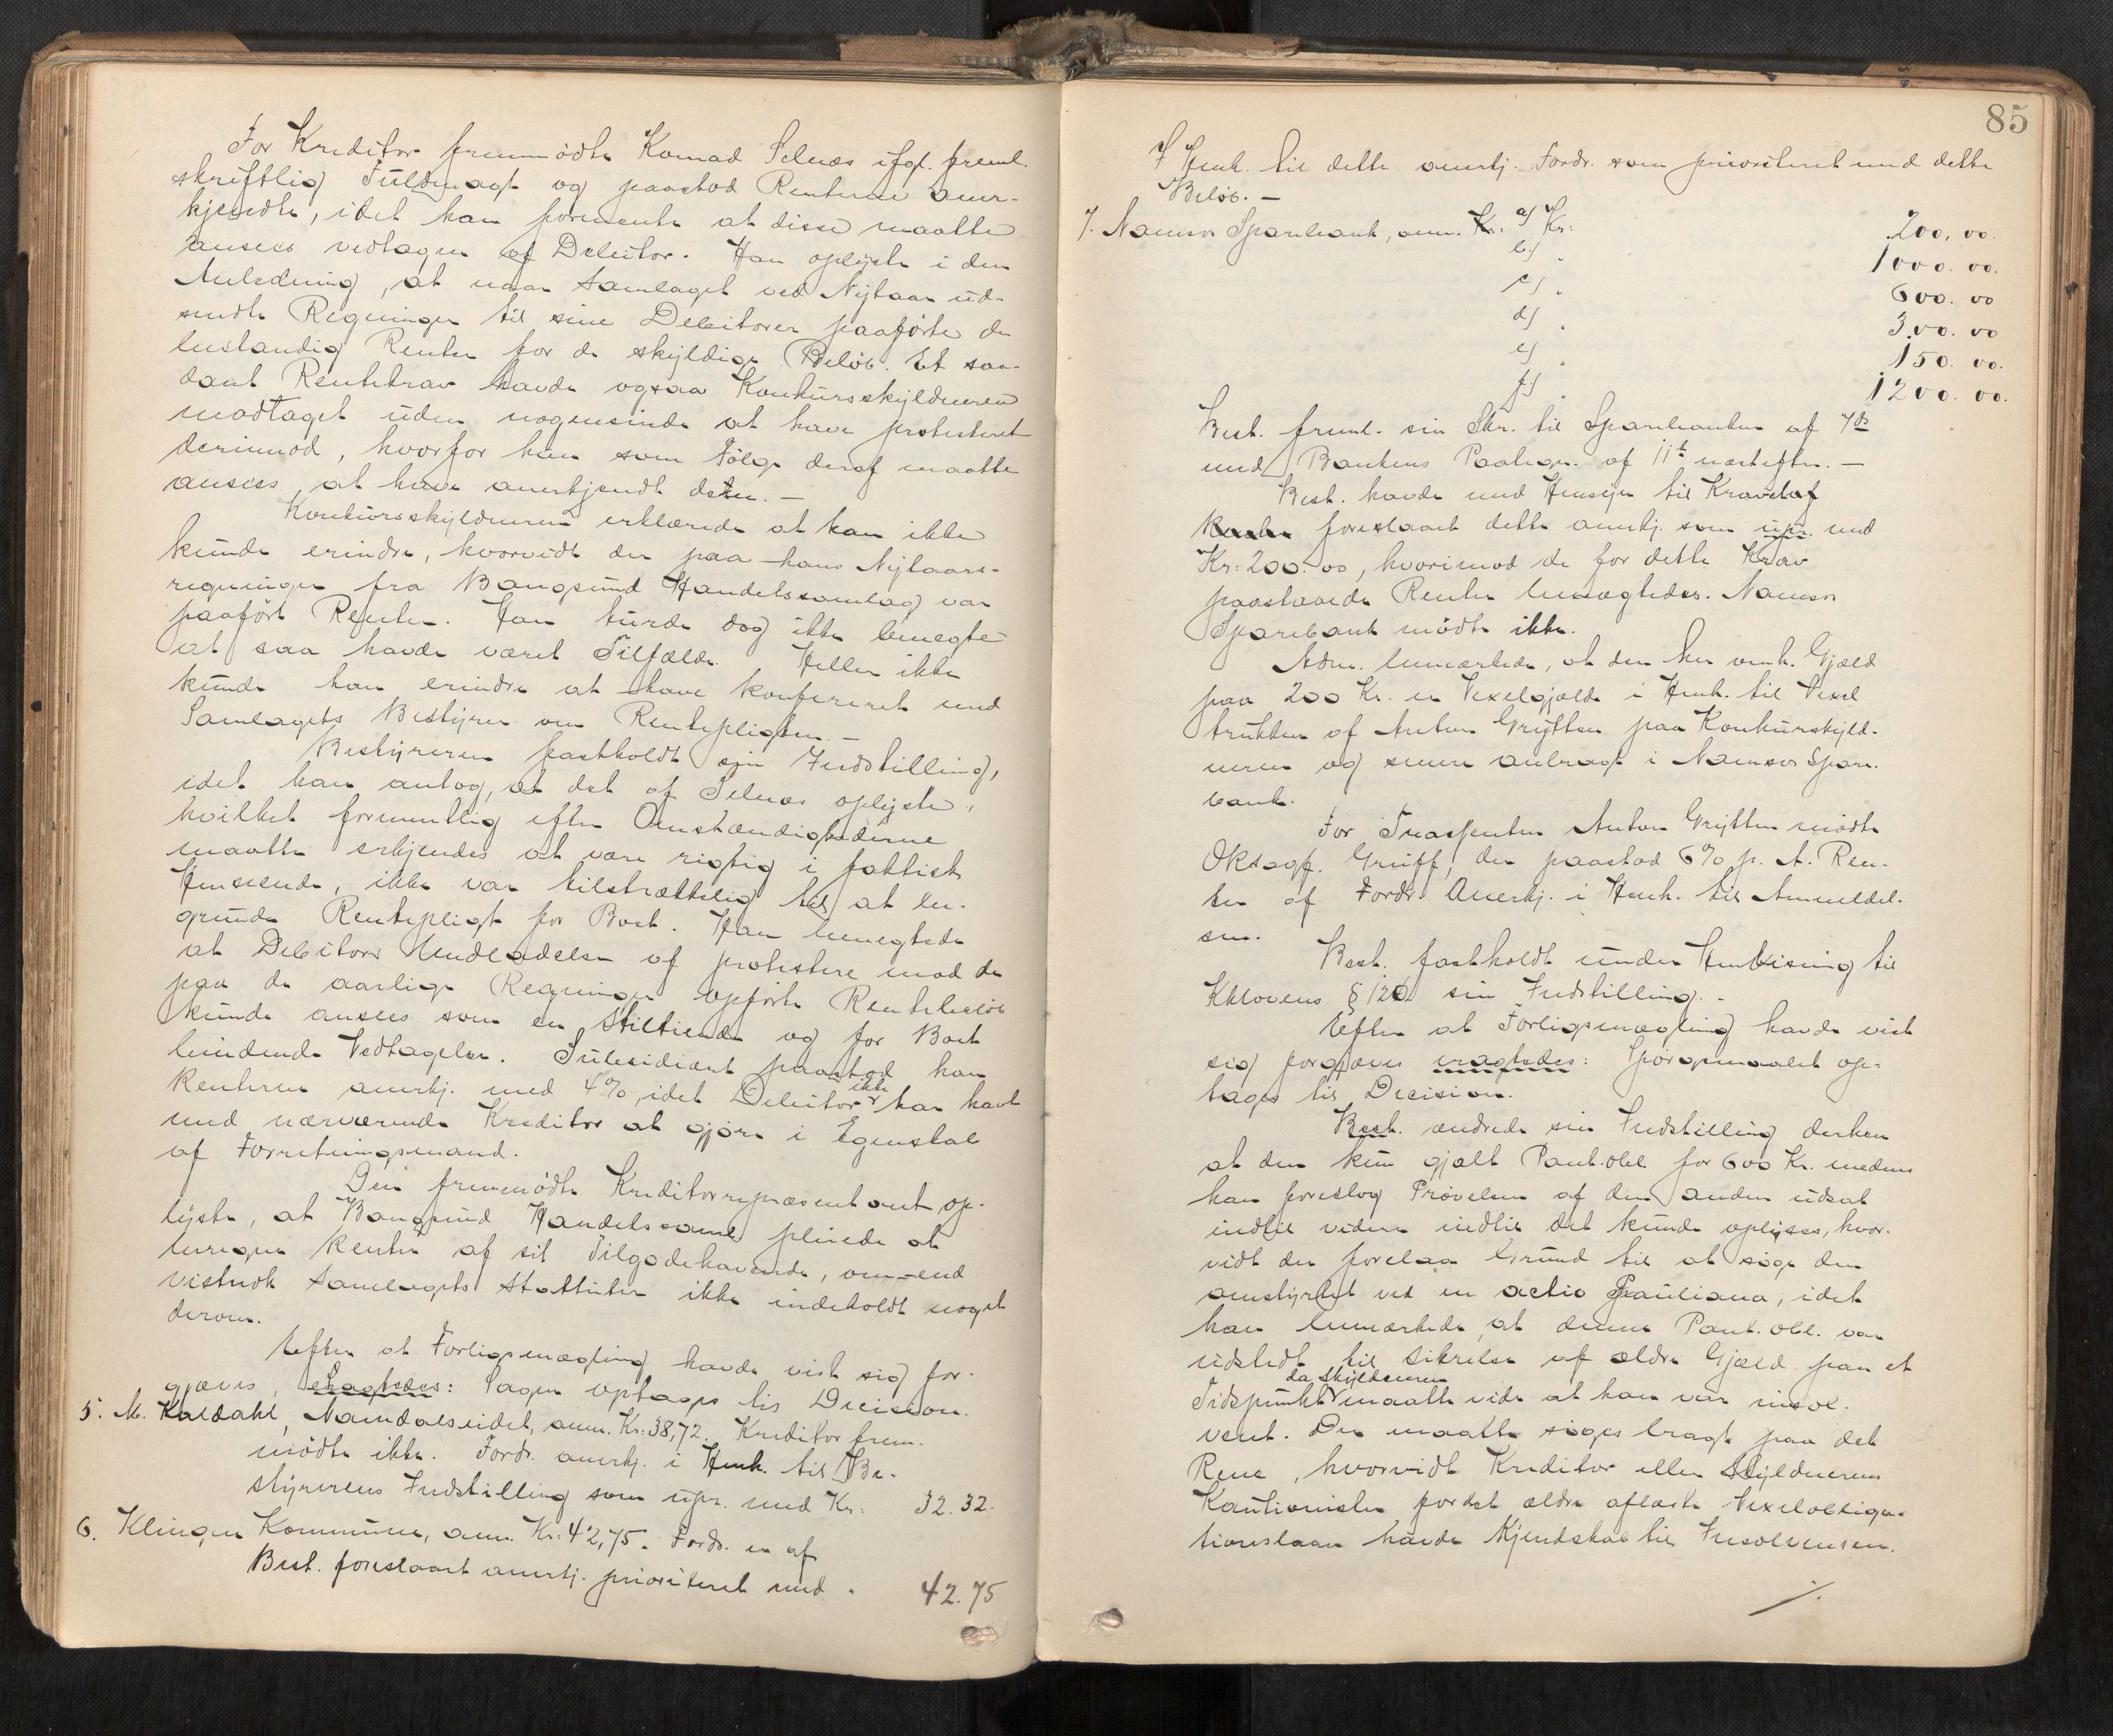 For Kreditor fremmødte Konrad Selnæs ifgl. freml.
skriftlig Fuldmagt og paastod Renterne aner-
kjendte, idet han formente at disse maatte
ansees vedtagen af Debitor. Han oplyste i den
Anledning, at naar Samlaget ved Nytaar ud-
sendte Regninger til sine Debitorer paaførte de
bestandig Renter for de skyldige Beløb. Et saa-
dant Rentekrav havde ogsaa Konkursskyldneren
modtaget uden nogensinde at have protesteret
derimod, hvorfor han som Følge deraf maatte
ansees at have anerkjendt dem. -
Konkursskyldneren erklærede at han ikke
kunde erindre, hvorvidt der paa hans Nytaars-
regninger fra Bangsund Handelssamlag var
paaført Renter. Han turde dog ikke benegte
at saa havde været Tilfælde. Heller ikke
kunde han erindre at have konfereret med
Samlagets Bestyrer om Rentepligten. -
Bestyreren fastholdt sin Indstilling,
idet han antog, at det af Selnæs oplyste,
hvilket formentlig efter Omstændighederne
maatte erkjendes at være rigtig i faktisk
Henseende, ikke var tilstrækkelig til at be-
grunde Rentepligt for Boet. Han benegtede
at Debitors Undladelse af protestere mod de
paa de aarlige Regninger opførte Rentebeløb
kunde ansees som en stiltiende og for Boet
bindende Vedtagelse. Subsidiært paastod han
Renterne anerkj. med 4%, idet Debitor ikke har havt
med nærværende Kreditor at gjøre i Egenskab
af Forretningsmand.
Den fremmødte Kreditorrepræsentant op-
lyste, at Bangsund Handelssaml. pleiede at
beregne Renter af sit Tilgodehavende, om end
vistnok Samlagets Statuter ikke indeholdt noget
derom.
Efter at Forligsmægling havde vist sig for-
gjæves, eragtedes: Sagen optages til Decision.
5. M. Kaldahl, Namdalseidet, anm. Kr. 38,72. Kreditor frem-
mødte ikke. Fordr. anerkj. i Henh. til Be-
styrerens Indstilling som upr. med Kr. 32.32.
6. Klingen Kommune, anm. Kr. 42,75. Fordr. er af
Best. foreslaaet anerkj. prioriteret med " 42.75
85
I Henh. til dette anerkj. Fordr. som prioriteret med dette
Beløb. -
7. Namsos Sparebank, anm. Kr. a) Kr: 200,00.
b) " 1000.00.
c) " 600.00
d) " 300.00
e) " 150.00.
f) " 1200.00.
Best. freml. sin Skr. til Sparebanken af 7ds
med Bankens Paategn. af 11te næstefter. -
Best. havde med Hensyn til Kravet a)
foreslaaet dette anerkj. som upr. med
Kr. 200.00, hvorimod de for dette Krav
paastaaede Renter benægtedes. Namsos
Sparebank mødte ikke.
Adm. bemærkede, at den her omh. Gjæld
paa 200 Kr. er Vexelgjæld i Henh. til Vexel
trukken af Anton Grytten paa Konkursskyld-
neren og senere anbragt i Namsos Spare-
bank.
For Trassenten Anton Grytten mødte
Oksagf. Gruff, der paastod 6% p. A. Ren-
ter af Fordr. Anerkj. i Henh. til Anmeldel-
sen.
Best. fastholdt under Henvisning til
Kklovens § 120 sin Indstilling. -
Efter at Forligsmægling havde vist
sig forgjæves eragtedes: Spørgsmaalet op-
tages til Decision.
Best. ændrede sin Indstilling derhen
at den kun gjalt Pant.obl. for 600 Kr. medens
han foreslog Prøvelsen af den anden udsat
indtil videre indtil det kunde oplyses, hvor-
vidt der forelaa Grund til at søge den
omstyrtet ved en actio Pauliana, idet
han bemærkede, at denne Pant.obl. var
udstedt til Sikrelse af ældre Gjæld paa et
Tidspunkt da Skyldneren maatte vide at han var insol-
vent. Der maatte søges bragt paa det
Rene, hvorvidt Kreditor eller Skyldnerens
Kautionister for det ældre afløste Vexelobliga-
tionslaan havde Kjendskab til Insolvensen.